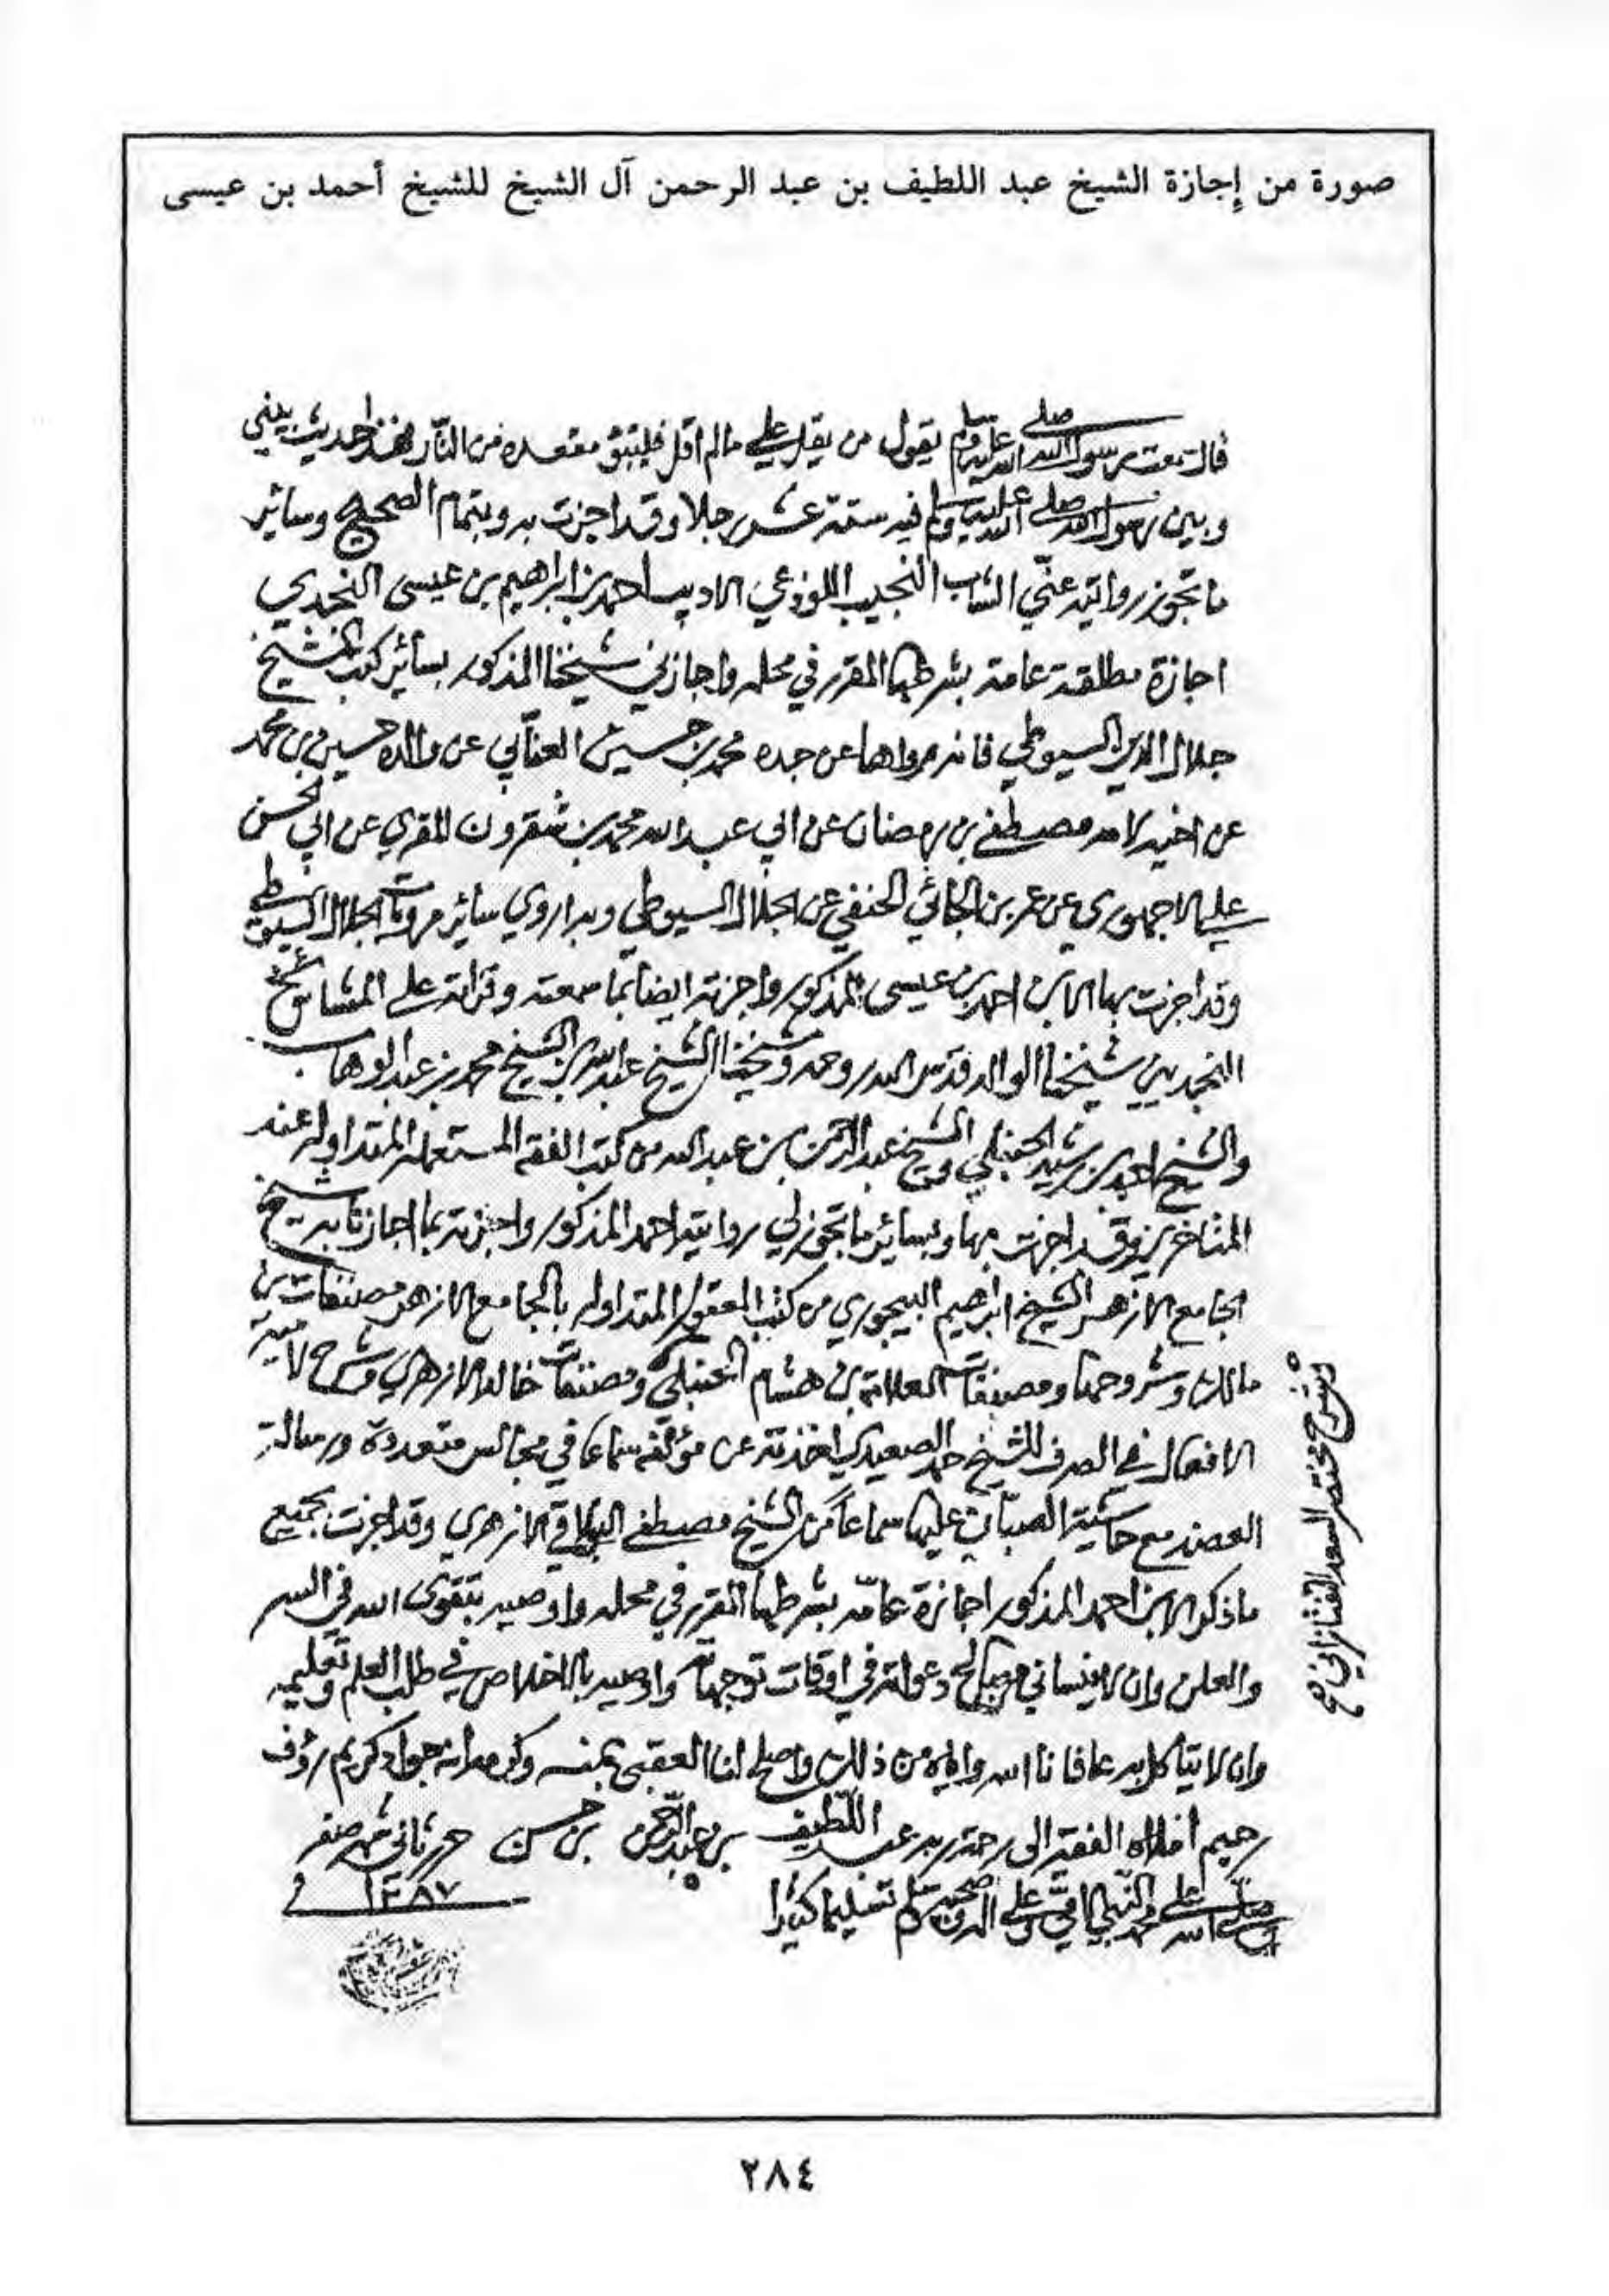 صورة من إجازة الشيخ عبد اللطيف بن عبد الرحمن آل الشيخ للشيخ أحمد بن عيسى
قال سمعت رسول الله صلى الله عليه وسلم يقول من يقل علي مالم اقل فليتبؤ مقعده من النار فهذا حديث بيني
وبين رسول الله صلى الله عليه وسلم فيه ستة عشر رجلا وقد اجزت به وبتمام الصحيح وسائر
ما تجوز روايته عنّي الشاب النجيب اللوذعي الاديب احمد بن ابراهيم بن عيسى النجدي
اجازة مطلقة عامة بشرطها المقرر في محله واجازني شيخنا المذكور بسائر كتب الشيخ
جلال الدين السيوطي فانه رواها عن جده محمد بن حسين العنّابي عن والده حسين بن محمد
عن اخيه لامه مصطفى بن رمضان عن ابي عبد الله محمد بن شقرون المقري عن ابي الحسن
علي الاجهوري عن عمر بن الجائي الحنفي عن الجلال السيوطي وبه اروي سائر مرويات الجلال السيوطي
وقد اجزت بها الابن احمد بن عيسى المذكور واجزته ايضا بما سمعته وقرأته على المشائخ
النجديين شيخنا الوالد قدس الله روحه وشيخنا الشيخ عبد الله بن الشيخ محمد بن عبد الوهاب
والشيخ احمد بن رشيد الحنبلي والشيخ عبد الرحمن بن عبد الله من كتب الفقه المستعملة المتداوله عند
المتاخرين وقد اجزت بها وبسائر ما تجوز لي روايته احمد المذكور واجزته بما اجازنا به شيخ
الجامع الازهر الشيخ ابراهيم البيجوري من كتب المعقول المتداوله بالجامع الازهر مصنفات بن
مالك وشروحها ومصنفات العلامة بن هشام الحنبلي ومصنفات خالد الازهري وشرح لامية
الافعال في الصرف للشيخ حمد الصعيدي اخذته عن مؤلفه سماعا في مجالس متعددة ورسالة
العضد مع حاشية الصبّان عليها سماعاً من الشيخ مصطفى الازهري وقد اجزت بجميع
ما ذكر الابن احمد المذكور اجازة عامّه بشرطها المقرر في محله واوصيه بتقوى الله في السر
والعلن وان لا ينساني من صالح دعواته في اوقات توجهاته واوصيه بالاخلاص في طلب العلم وتعليمه
وان لا يتأكل به عافانا الله واياه من ذلك واصلح لنا العقبى بمنه وكرمه انه جواد كريم رؤف
رحيم املاه الفقير الى رحمة ربه عبد اللّطيف بن عبد الرّحمن بن حسن حرر ثاني شهر صفر
١٢٨٧
وصلى الله على محمد النبي الامّي وعلى اله وصحبه وسلم تسليما كثيرا
وشرح مختصر السعد التفتازاني صح
٢٨٤